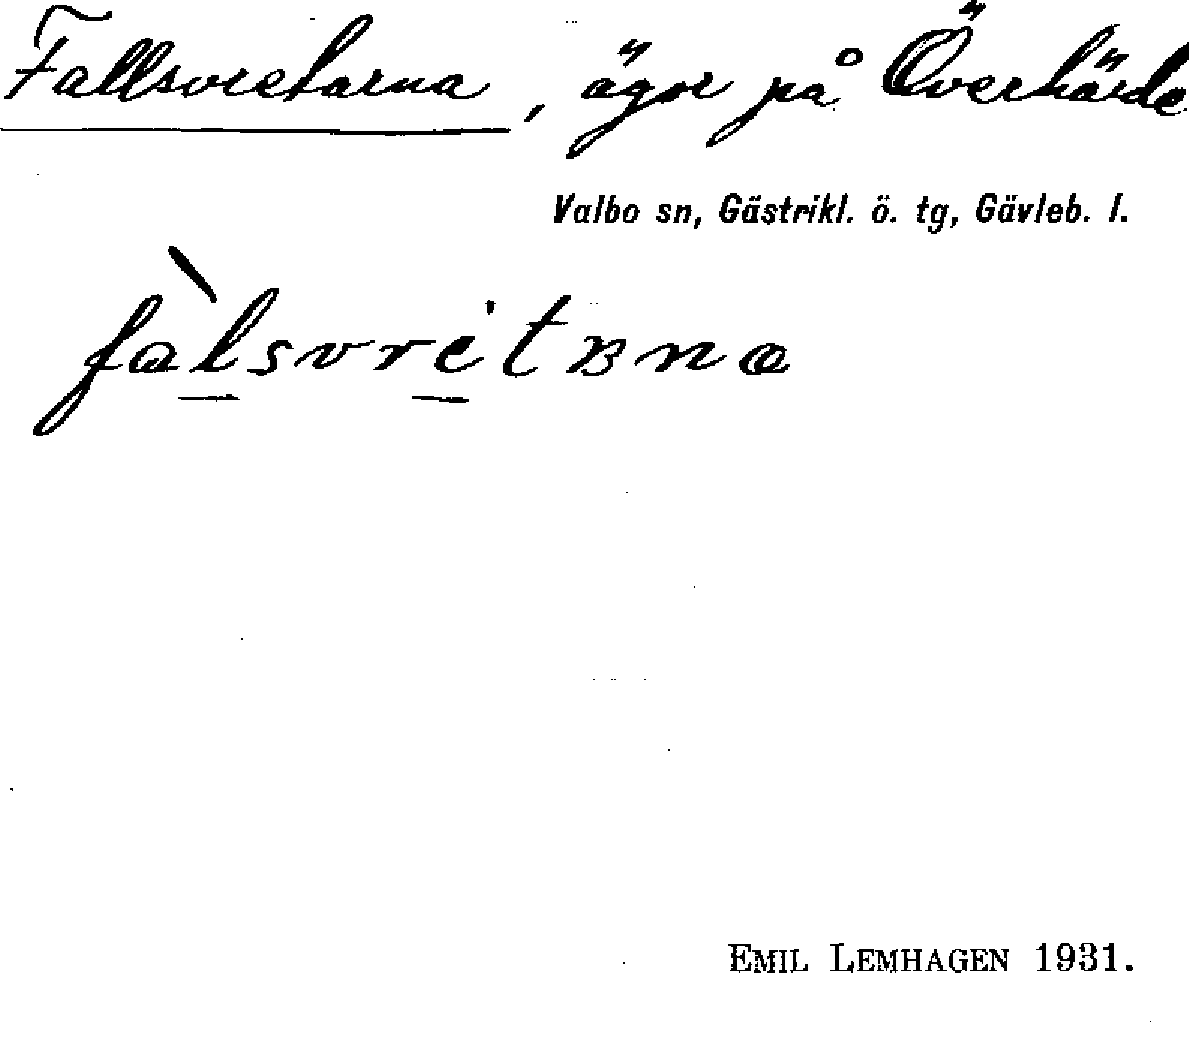 Fallsvretarna, ägor på Överhärde
Valbo sn, Gästrikl. ö. tg, Gävleb. l.
fàlsvretʙna
EMIL LEMHAGEN 1931.